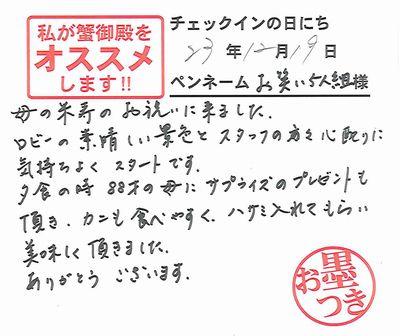 私が蟹御殿を
オススメ
します!!
チェックインの日にち
23年12月19日
ペンネーム お笑い5人組様
母の米寿のお祝いに来ました。
ロビーの素晴しい景色とスタッフの方々心配りに
気持ちよくスタートです。
夕食の時88才の母にサプライズのプレゼントも
頂き、カニも食べやすく、ハサミ入れてもらい
美味しく頂きました。
ありがとうございます。
お墨つき